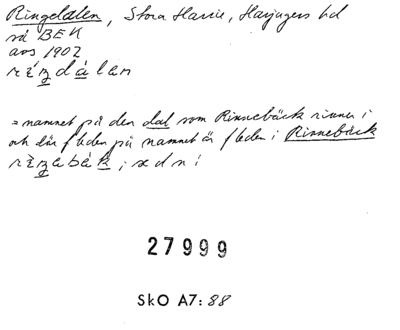 Ringdalen, Stora Harrie, Harjagers hd
så BEN
avs 1902
= namnet på den dal som Rinnebäck rinner i
och där fleden på namnet är fleden i Rinnebäck
27999
SkO A7:88